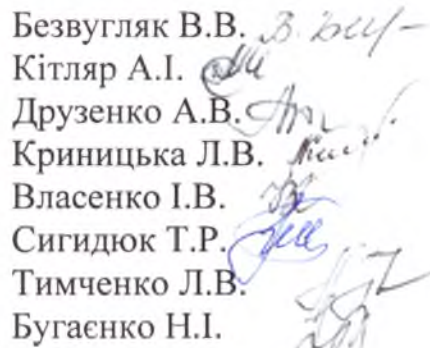 Безвугляк В.В.
Кітляр А.І.
Друзенко А.В.
Криницька Л.В.
Власенко І.В.
Сигидюк Т.Р.
Тимченко Л.В.
Бугаєнко Н.І.